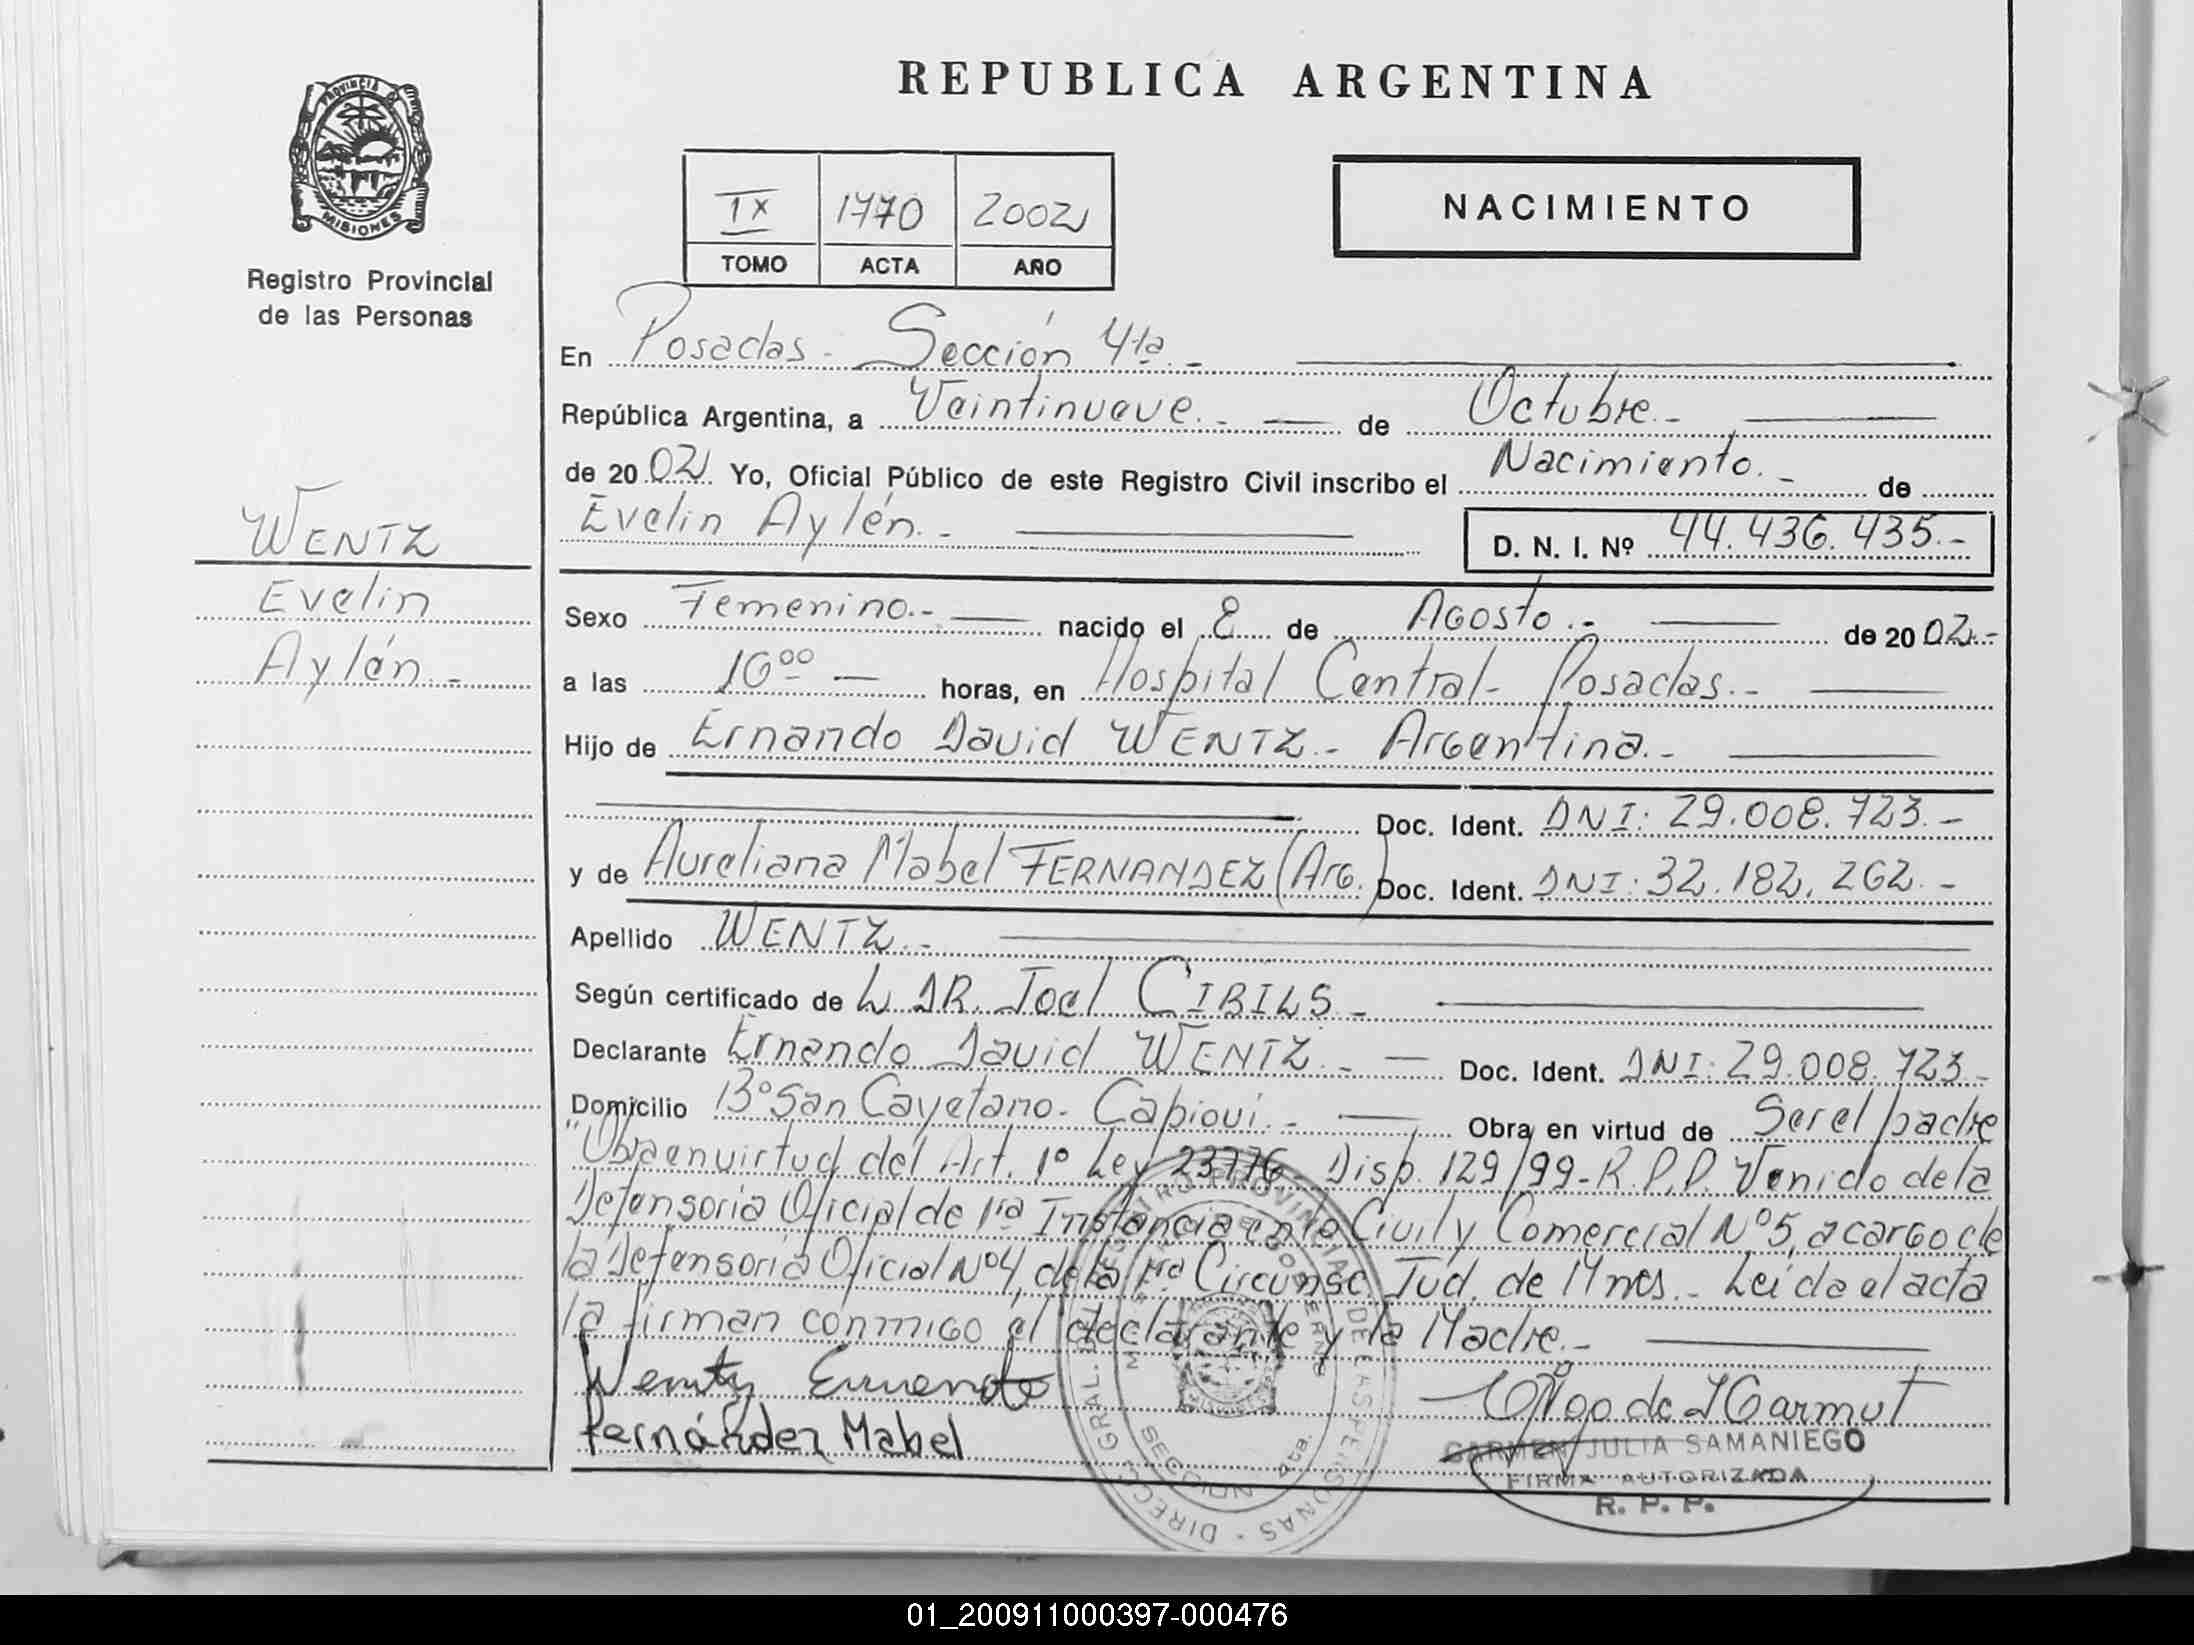 REPUBLICA ARGENTINA
PROVINCIA D
MISIONES
Registro Provincial
de las Personas
IX 1770 2002
TOMO ACTA AÑO
NACIMIENTO
En Posadas - Sección 4ta.-
República Argentina, a Veintinueve.- de Octubre.-
de 20 02. Yo, Oficial Público de este Registro Civil inscribo el Nacimiento.- de
Evelin Aylén.- D. N. I. Nº 44.436.435.-
WENTZ
Evelin
Aylén.-
Sexo Femenino.- nacido el 8 de Agosto.- de 20 02.-
a las 16 00 horas, en Hospital Central - Posadas.-
Hijo de Ernando David WENTZ.- Argentina.-
Doc. Ident. DNI: 29.008.723.-
y de Aureliana Mabel FERNANDEZ (Arg.) Doc. Ident. DNI: 32.182.262.-
Apellido WENTZ.-
Según certificado de L. DR. Joel CIBILS.-
Declarante Ernando David WENTZ.- Doc. Ident. DNI: 29.008.723.-
Domicilio Bº San Cayetano - Capioví.- Obra en virtud de Ser el padre
"Obra en virtud del Art. 1º Ley 23776 - Disp. 129/99 - R.P.P. Venido de la
Defensoria Oficial de 1ra Instancia en lo Civil y Comercial Nº 5, a cargo de
la Defensoria Oficial Nº 4, de la 1ra Circunsc. Jud. de Mnes.- Leída el acta
la firman conmigo el declarante y la Madre.-
Wentz Ernando
Fernández Mabel
CARMEN JULIA SAMANIEGO
FIRMA AUTORIZADA
R. P. P.
DIRECC. GRAL. DEL REGISTRO PROVINCIAL DE LAS PERSONAS
01_200911000397-000476